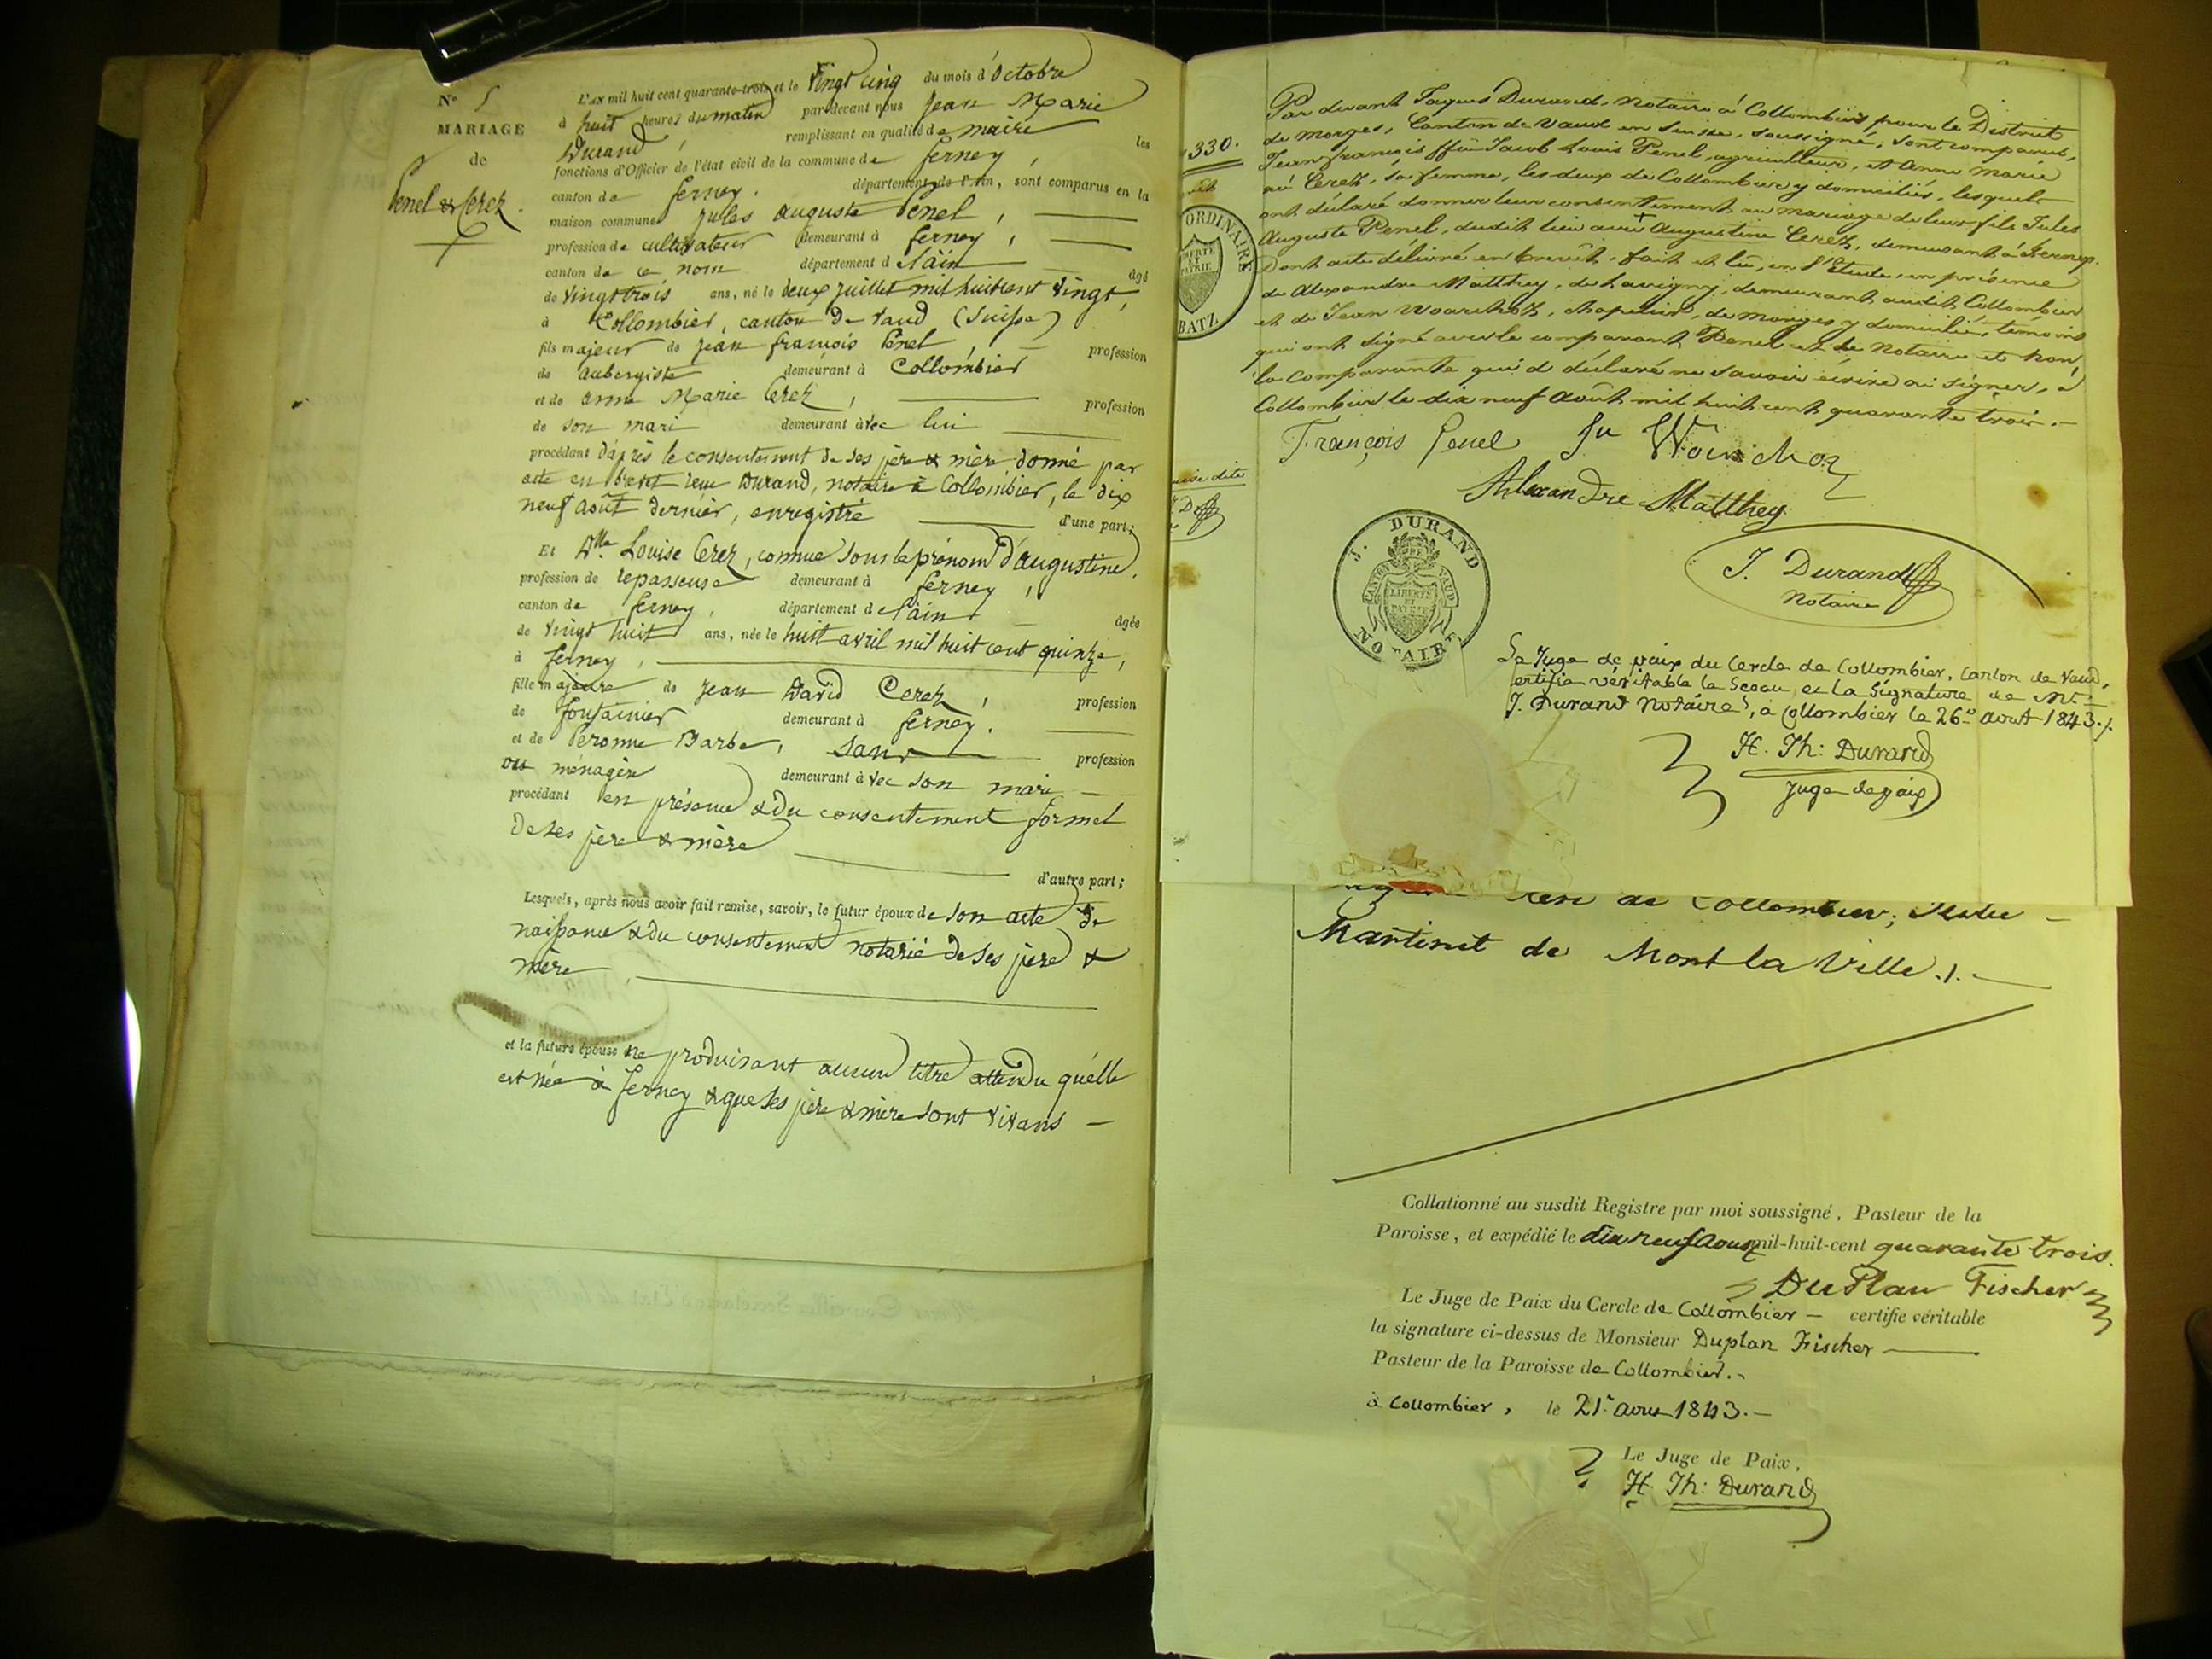 N° 5
MARIAGE
de
Penel & Cerez.
L'an mil huit cent quarante-trois et le Vingt cinq du mois d'octobre
à huit heures du matin par-devant nous Jean Marie
Durand, remplissant en qualité de maire les
fonctions d'Officier de l'état civil de la commune de ferney,
canton de ferney. département de l'Ain, sont comparus en la
maison commune Jules auguste Penel,
profession de cultivateur demeurant à ferney,
canton de ce nom département de l'ain âgé
de Vingt trois ans, né le deux juillet mil huit cent Vingt,
à Collombier, canton de Vaud (Suisse)
fils majeur de Jean françois Penel, profession
de aubergiste demeurant à Collombier
et de anne Marie Cerez, profession
de son mari demeurant avec lui
procédant d'après le consentement de ses père & mère donné par
acte en brevet reçu Durand, notaire à Collombier, le dix
neuf août dernier, enregistré d'une part;
Et Dlle Louise Cerez, connue sous le prénom d'augustine,
profession de repasseuse demeurant à ferney,
canton de ferney, département de l'ain âgée
de Vingt huit ans, née le huit avril mil huit cent quinze,
à ferney,
fille majeure de Jean David Cerez, profession
de fontainier demeurant à ferney.
et de Peronne Barbe, sans profession
ou ménagère demeurant avec son mari
procédant en présence & du consentement formel
de ses père & mère
d'autre part;
Lesquels, après nous avoir fait remise, savoir, le futur époux de son acte de
naissance & du consentement notarié de ses père &
mère
et la future épouse ne produisant aucun titre attendu qu'elle
est née à ferney & que ses père & mère sont vivans
330.
ORDINAIRE
LIBERTÉ
ET
PATRIE
BATZ
Par devant Jaques Durand, Notaire à Collombier pour le District
de Morges, Canton de Vaud en Suisse, soussigné, sont comparus,
Jean françois ffeu Jacob Louis Penel, agriculteur, et Anne Marie
née Cerez, sa femme, les deux de Collombier y domiciliés, lesquels
ont déclaré donner leur consentement au mariage de leur fils Jules
Auguste Penel, dudit lieu avec Augustine Cerez, demeurant à Ferney.
Dont acte délivré en brevêt, fait et lû, en l'Etude, en présence
de Alexandre Matthey, de Savigny, demeurant audit Collombier
et de Jean Woinchoz, chapelier, de Morges y domicilié, témoins
qui ont signé avec le comparant Penel et le Notaire et non
la comparante qui a déclaré ne savoir écrire ni signer, à
Collombier le dix neuf Août mil huit cent quarante trois.
François Penel Jn Woinchoz
Alexandre Matthey
J. DURAND
CANTON DE VAUD
LIBERTÉ
ET
PATRIE
NOTAIRE
J. Durand
Notaire
Le Juge de paix du Cercle de Collombier, Canton de Vaud,
certifie véritable le Sceau et la Signature de Mr
J. Durand Notaire, à Collombier le 26e août 1843.
H. Th: Durand
Juge de paix
de Collombier;
Martinet de Mont la Ville.
Collationné au susdit Registre par moi soussigné, Pasteur de la
Paroisse, et expédié le dix neuf Aoust mil-huit-cent quarante trois.
DuPlan Fischer
Le Juge de Paix du Cercle de Collombier — certifie véritable
la signature ci-dessus de Monsieur Duplan Fischer
Pasteur de la Paroisse de Collombier.
à Collombier, le 21e aout 1843.
Le Juge de Paix,
H. Th: Durand